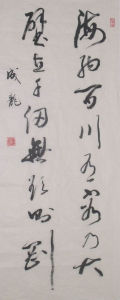 海纳百川有容乃大
壁立千仞無欲则剛
成龍